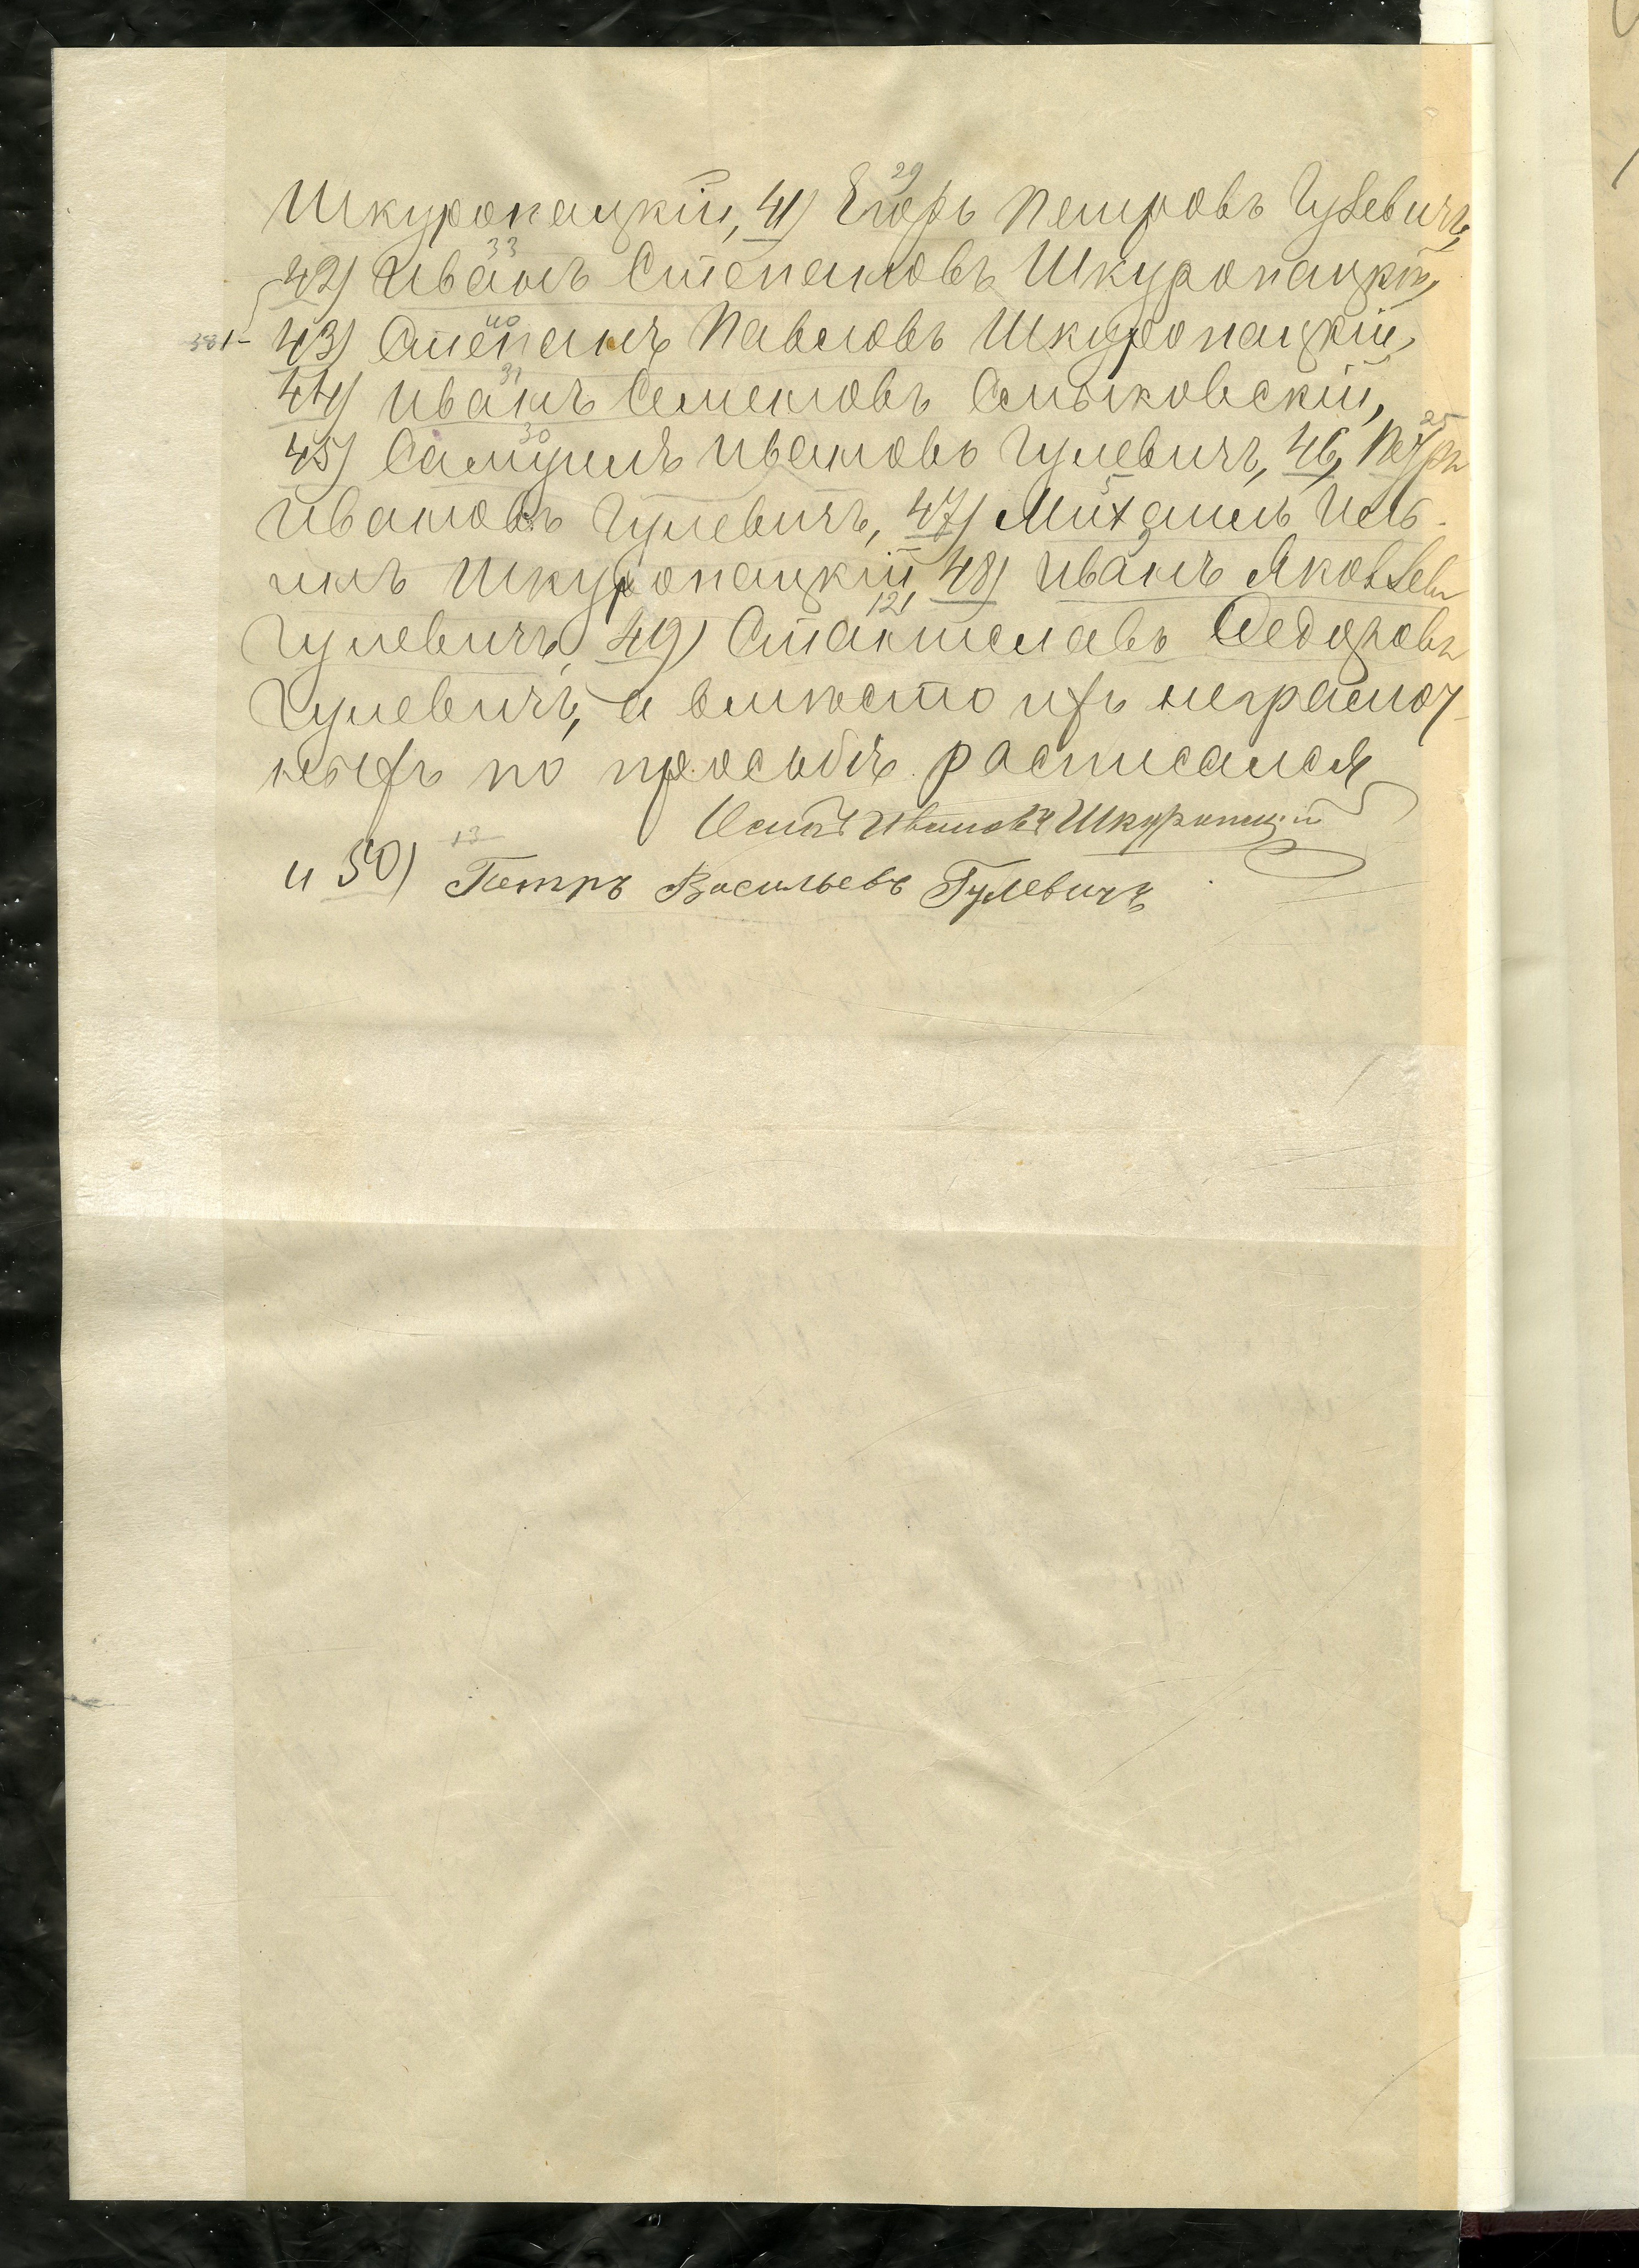 29
Шкуропацкій, 41) Егоръ Петровъ Гулевичъ,
33
42) Иванъ Степановъ Шкуропацкій,
40
43) Степанъ Павловъ Шкуропацкій,
31
44) Иванъ Семеновъ Смыковскій,
30 25
45) Самуилъ Ивановъ Гулевичъ, 46, Петръ
5
Ивановъ Гулевичъ, 47) Михаилъ Иль-
инъ Шкуропацкій, 48) Иванъ Яковлевъ
121
Гулевичъ, 49) Станиславъ Федоровъ
Гулевичъ, а вмѣсто ихъ неграмот-
ныхъ по просьбѣ росписался
Осипъ Ивановъ Шкуропацкій
13
и 50) Петръ Васильевъ Гулевичъ